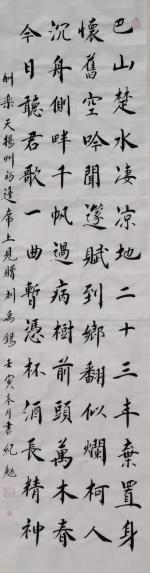 巴山楚水凄凉地二十三年棄置身
懷舊空吟聞邃賦到鄉翻似爛柯人
沉舟側畔千帆過病樹前頭萬木春
今日聽君歌一曲暫憑杯酒長精神
酬樂天揚州初逢席上見贈劉禹錫 壬寅冬月書 紀勉